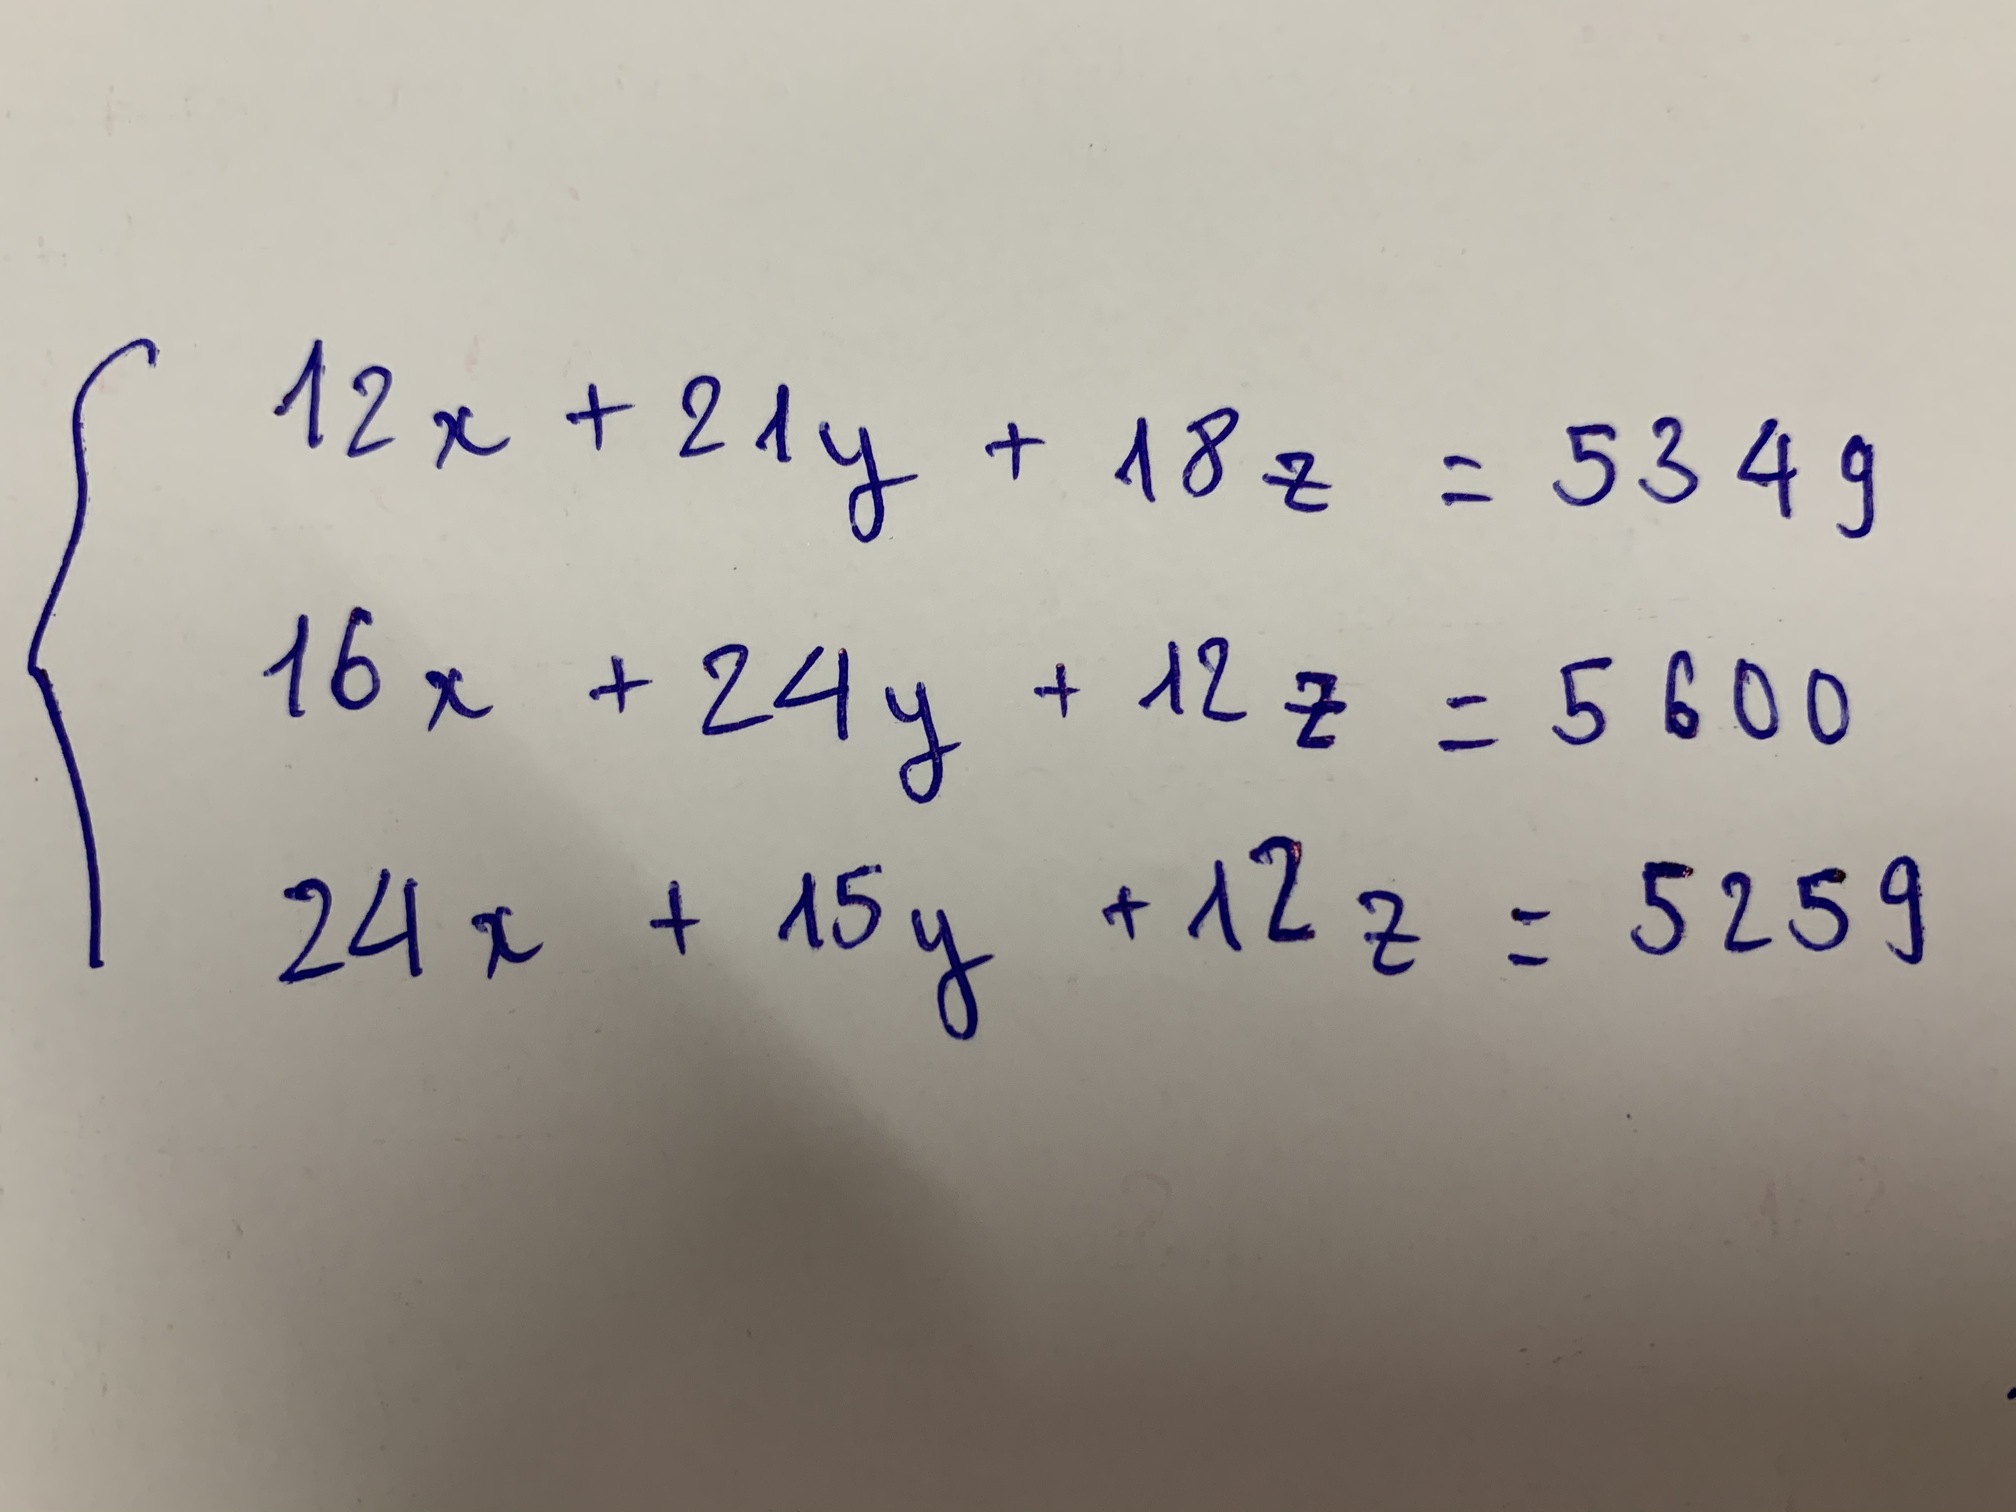 12x + 21y + 18z = 5349
16x + 24y + 12z = 5600
24x + 15y + 12z = 5259